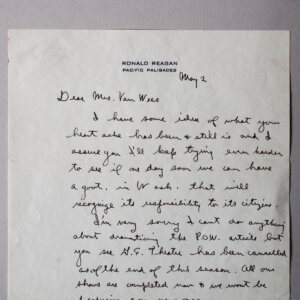 RONALD REAGAN
PACIFIC PALISADES
May 2
Dear Mrs. Van Wees
I have some idea of what your
heart ache has been & still is and I
assure you I'll keep trying even harder
to see if one day soon we can have
a govt. in Wash. that will
recognize its responsibility to its citizens.
I'm very sorry I can't do anything
about dramatizing the P.O.W. article but
you see G.E. Theatre has been cancelled
as of the end of this season. All our
shows are completed now & we won't be